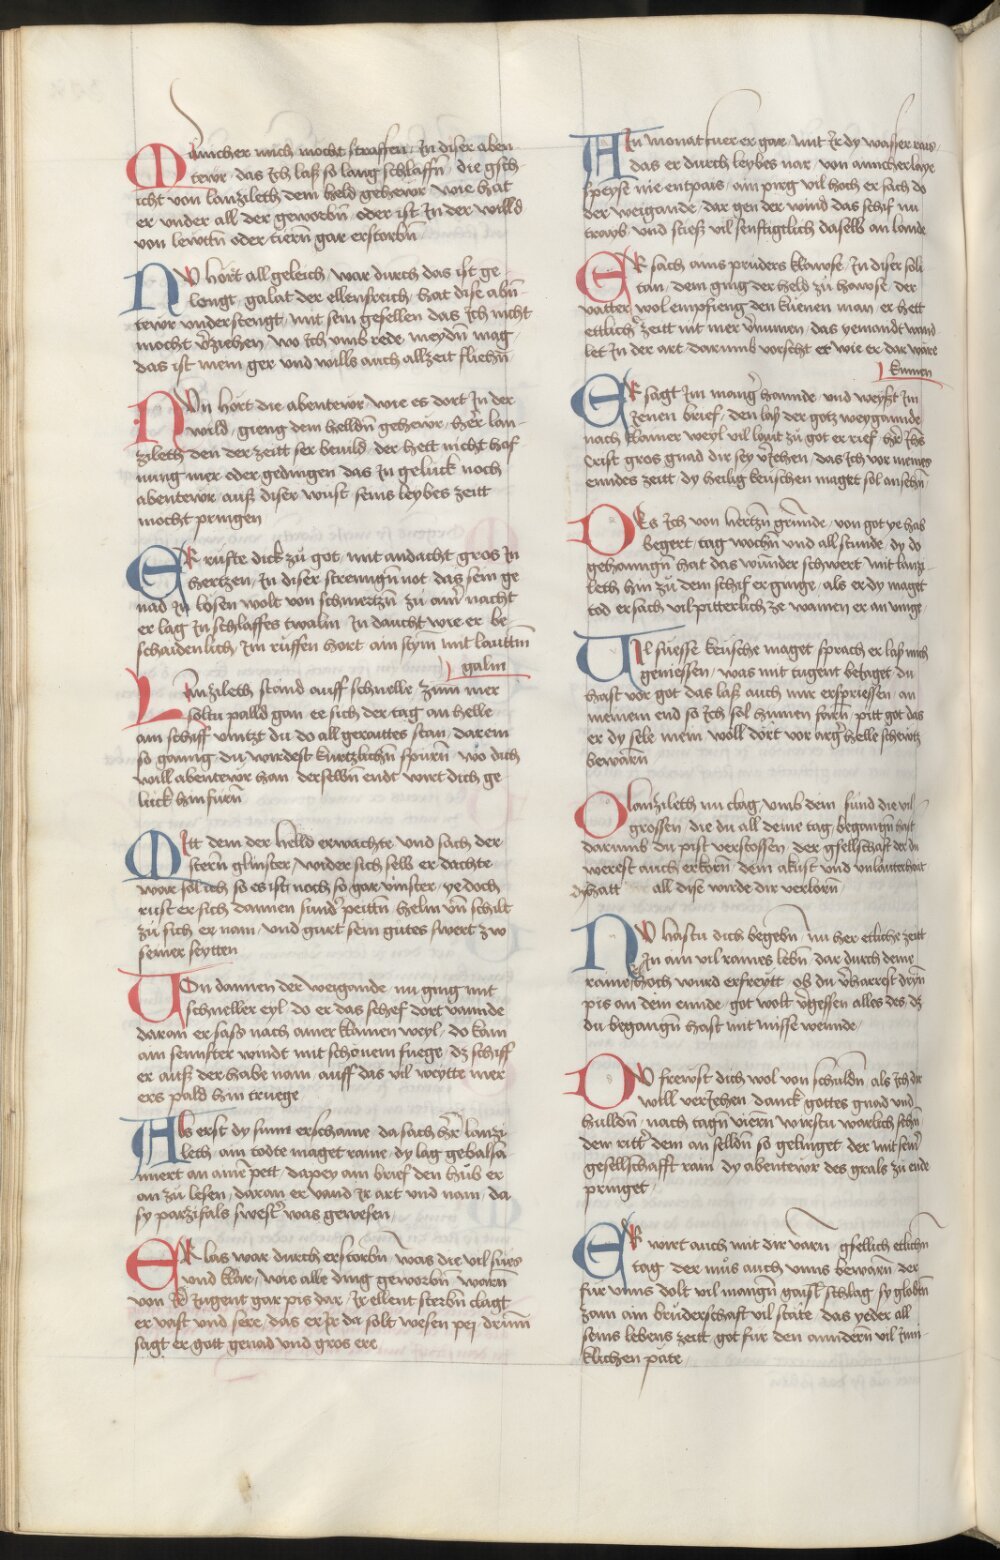 Manicher mich mocht straffen / In diser aben
tewr / das Ich lass so lang schlaffn / die gsch
icht von lanzileth dem held gehewr / wie hat
er vnder all der geworbn̄ / oder ist In der willd
von lewttn̄ oder tiern̄ gar erstorbn̄
NV hört all geleich / war durch das ist ge
lengt / galat der ellensreich / hat dise abn̄
tewr vnderstengt / mit sein gesellen das Ich nicht
mocht v̄ziehen / wo Ich vmb rede meydn̄ mag
das ist mein ger vnd wills auch allzeit fliehn̄
NVn hört die abentewr / wie es dort In der
wild / gieng dem helldn̄ gehewr / her̄ lan
zileth den der zeitt ser beuild / der hett nicht hof
nung mer oder gedingen das In gelück noch
abentewr auß diser wüst seins leybes zeitt
mocht pringen
ER rüfte dick zů got / mit andacht gros In
hertzen / In diser strenngn̄ not das sein ge
nad In lösen wolt von schmertzn̄ zů ainr̄ nacht
er lag In schlaffes twalm In daucht wie er be
schaidenlich Im rüffen hort ain stym̄ mit lauttm̄
galm
LAnzileth stand auff schnelle / zum mer
soltu palld gan / ee sich der tag an helle
ain schiff vintzt du do all geraittes stan / darein
so ganng / du wirdest kurtzlichn̄ spurn̄ / wo dich
will abentewr han / derselbn̄ endt wirt dich ge
lück hin furn̄
MItt dem der helld erwachte / vnd sach der
stern̄ glinster / wider sich selb er dachte
war sol ich so es ist noch so gar vinster / ye doch
rüst er sich dannen sunder peittn̄ / helm vn̄ schilt
zů sich er nam / vnd gurt sein gutes swert zw
seiner seytten
VOn dannen der weigande / nu ging mit
schneller eyl / do er das schef dort vannde
daran er sass / nach ainer klainen weyl / do kam
ain sennfter windt mit schönem fuege / dz schiff
er auß der habe nam / auff das vil weytte mer
ers pald hin truege
Als erst dy sunn erschaine / da sach her̄ lanzi
leth / ain todte maget raine / dy lag gebalsa
miert an ainr̄ pett / dapey ain brief den hůb er
an zů lesen / daran er vand Ir art vnd nam / da
sy parzifals swest̄ was gewesen /
ER las war durch erstorbn̄ / was die vil sües
vnd klar / wie alle ding geworbn̄ warn̄
von Ir Iugent gar pis dar / Ir ellent sterbn̄ clagt
er vast vnd sere / das er Ir da solt wesen pey / drumm̄
sagt er gott genad vnd gros ere
AIn monat fuer er gar / mit Ir dy wasser raus /
das er durch leybes nar / von annicherlaye
speyse nie entpais / ain perg vil hoch er sach do
der weigande / dar gen der wind das schif nu
trayb / vnd stieß vil senftigtlich daselb an lande
ER sach ains pruders klawse / In diser soli
tan / dem ging der held zů hawse / der
vatter wol empfieng den küenen man / er hett
ettlich zeitt nit mer v̄numen / das yemandt wand
let In der art / darumb vorscht er wie er dar wäre
kumen
ER sagt Im mangr̄ hannde / vnd weyst Im
Jenen brief / den laß der gotz weygannde
nach klainer weyl vil laut zů got er rief / hr̄ Ihs̄
Crist gros gnad dir sey v̄Jehen / das Ich vor meines
enndes zeitt / dy heilig keuschen maget sol ansehn̄
DEs Ich von hertzn̄ grunde / von got ye hab
begert / tag wochn̄ vnd all stunde / dy do
gehonnign̄ hat das wunder schwert / mit lanzi
leth hin zu dem schif er ginge / als er dy maget
tod ersach vil pitterlich ze wainen er an vinge
VIl süesse keusche maget sprach er laß mich
geniessen / was mit tugent betaget du
hast vor got das laß auch mir erspriessen / an
meinem end so Ich sol hinnen farn̄ / pitt got das
er dy sele mein / wöll dort vor argr̄ helle scheutz
bewarn̄
O lanzileth nu clag / vmb dein sünd die vil
grossen / die du all deine tag / begangn̄ hast
darumb du pist verstossen / der gsellschaft der du
werest auch erkorn̄ / dein akust vnd vnlautterhait
dy hatt all dise wirde dir verlorn̄
NV hastu dich begebn̄ / nu her ettliche zeitt
In ain vil raines lebn̄ / dar durch deine
raine hoch wird erfreytt / ob du v̄harrest deryn̄
pis an dein ennde / got wolt v̄gessen alles des dz
du begangn̄ hast mit missewennde /
DV frewst dich wol von schuldn̄ / als Ich dir
will verJehen / danck gottes gnad vnd
hulldn̄ / nach tagn̄ viern̄ wirstu warlich sehn̄
den ritt̄ dem an selldn̄ so gelinget / der mit seinr̄
gesellschafft rain / dy abentewr des grals zů ende
pringet /
ER wirt auch mit dir varn̄ / gsellich ettlichn̄
tag / der můs auch vnns bewarn̄ / der
für vnns dolt vil mangn̄ gaisl schlag / sy globtn̄
zam ain brůderschaft vil stäte / das yeder all
seins lebens zeitt / got für den anndern̄ vil Inni
klichen päte /